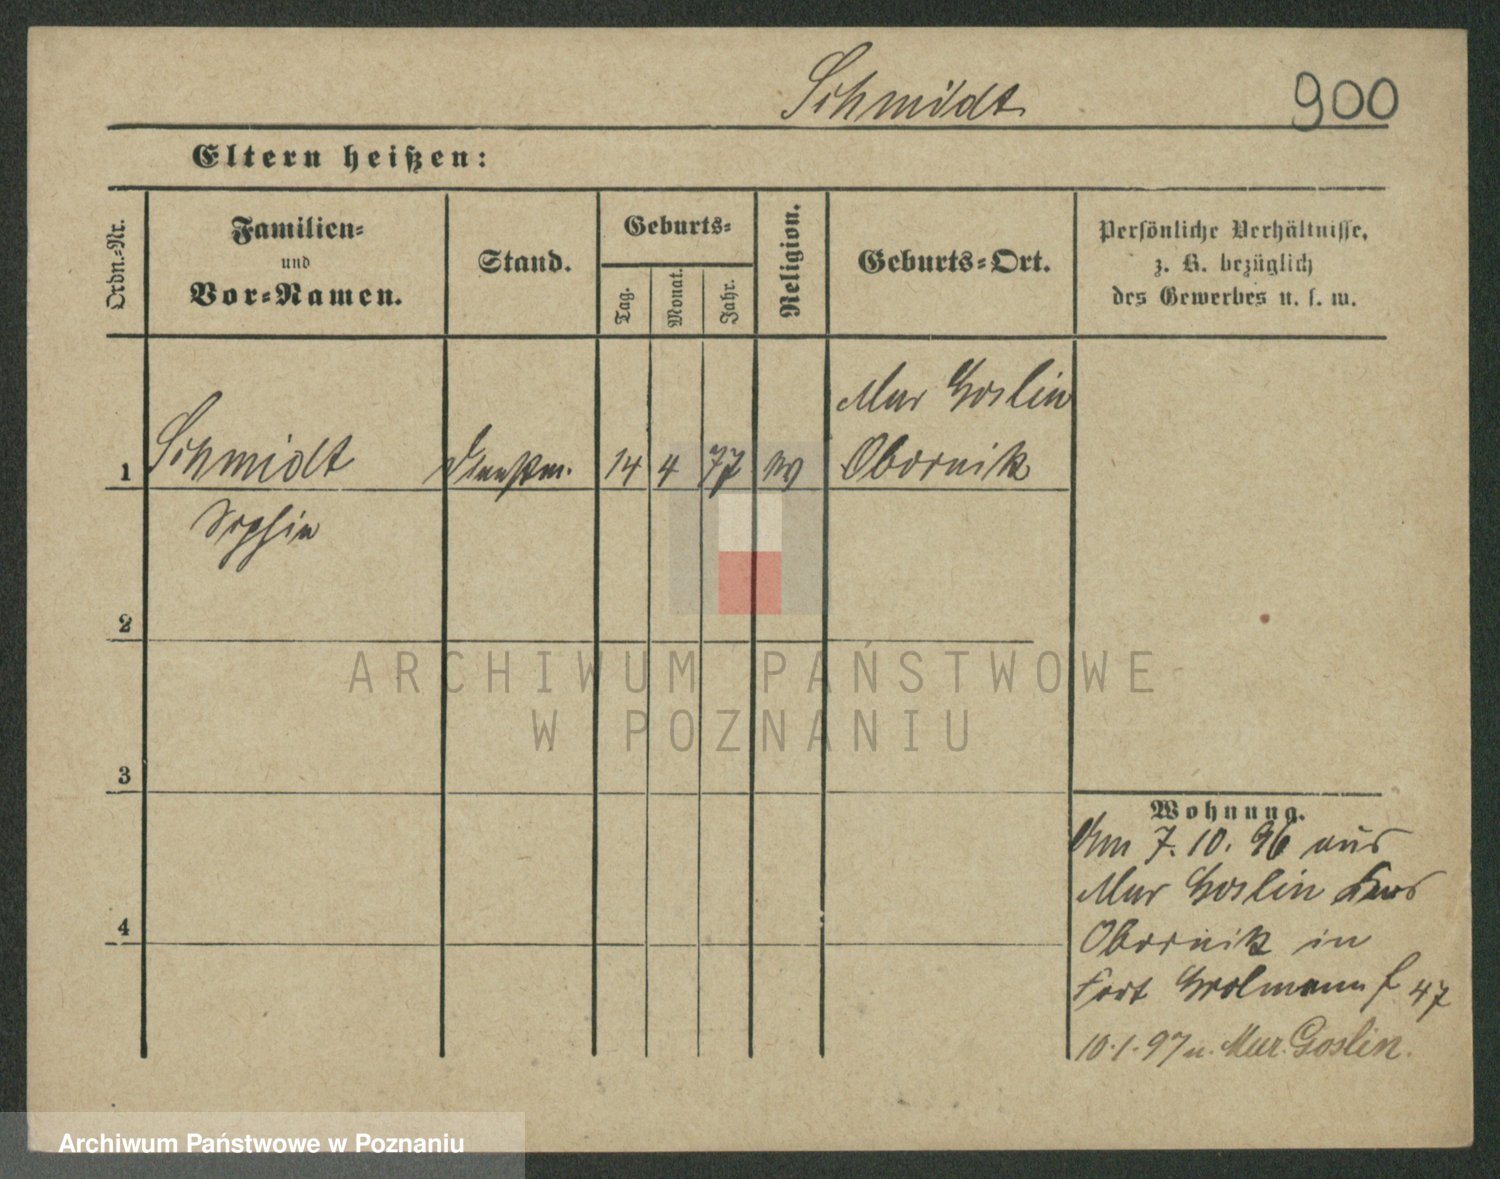 Schmidt
900
Eltern heißen:
Ordn.-Nr.
Familien-
und
Vor-Namen.
Stand.
Geburts-
Tag.
Monat.
Jahr.
Religion.
Geburts-Ort.
Persönliche Verhältnisse,
z. B. bezüglich
des Gewerbes u. s. w.
Mur Goslin
1 Schmidt 14 4 77 Obornik
Sophie
2
3
4
Wohnung.
Am 7.10.96 aus
Mur Goslin Kreis
Obornik in
Fort Grolmann f 47
10.1.97 n. Mur. Goslin.
ARCHIWUM PAŃSTWOWE
W POZNANIU
Archiwum Państwowe w Poznaniu